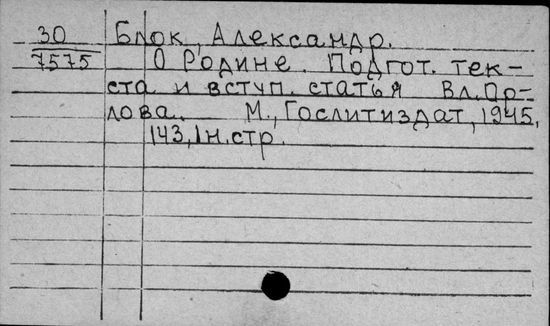 30 Блок, Александр.
7575 О Родине. Подгот. тек-
ста и вступ. статья Вл.Ор-
лова. М., Гослитиздат, 1945.
143, 1н.стр.